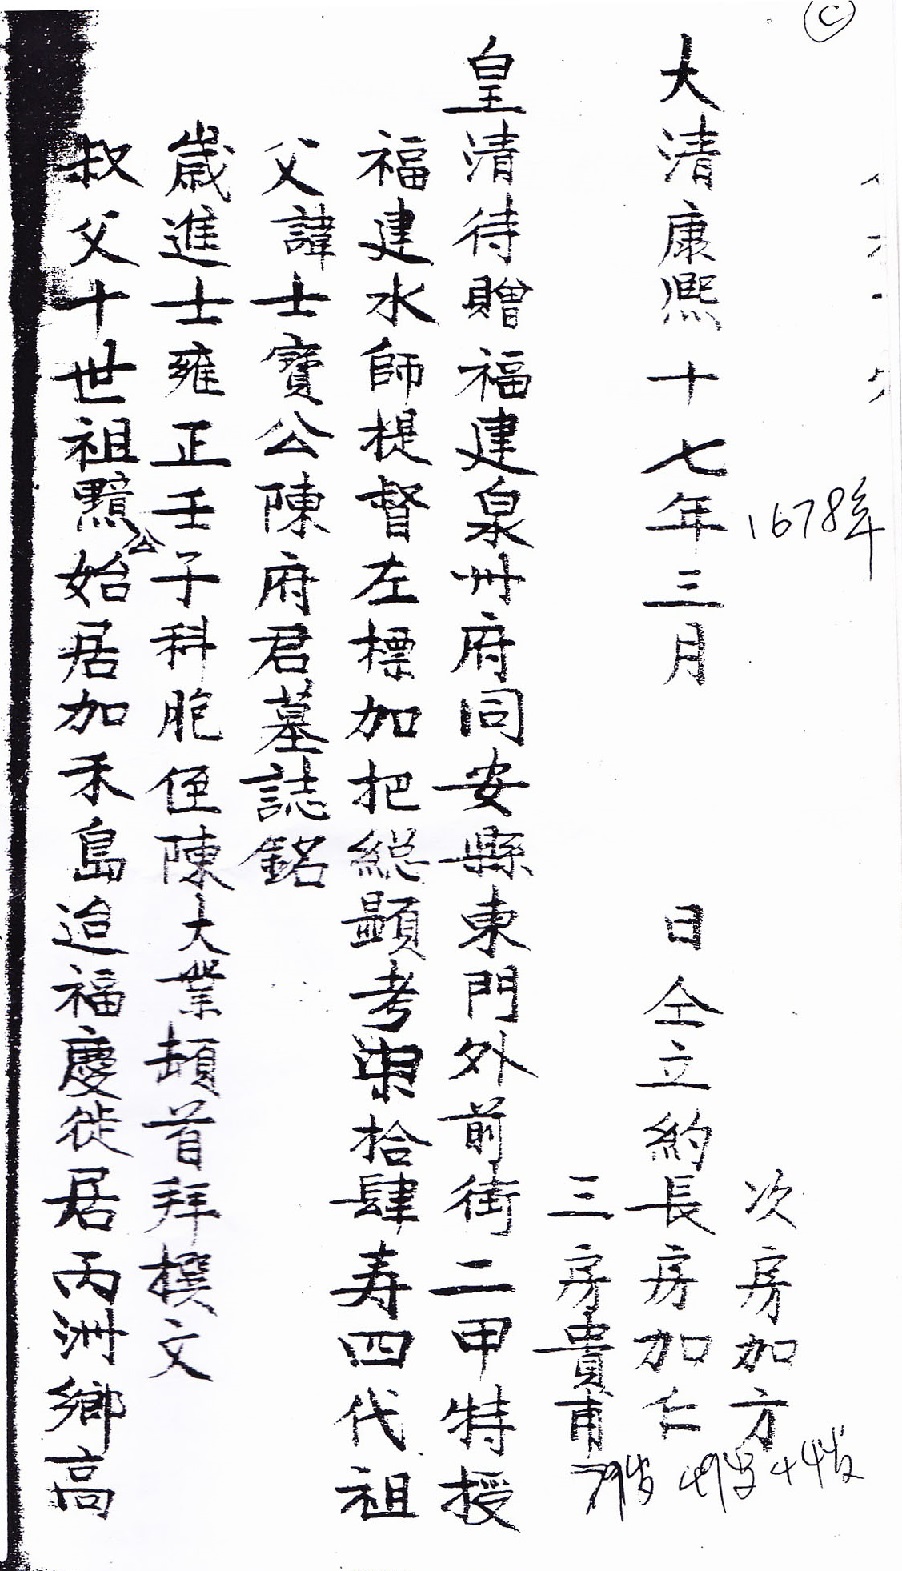 C
大清康熙十七年三月　日仝立約長房加仁
1678年
次房加方
三房貴甫
皇清待贈福建泉州府同安縣東門外前街二甲特授
福建水師提督左標加把總顯考 拾肆寿四代祖
父諱士寶公陳府君墓誌銘
歲進士雍正壬子科胞侄陳大業頓首拜撰文
叔父十世祖黯公始居加禾島迨福慶徙居丙洲鄉高